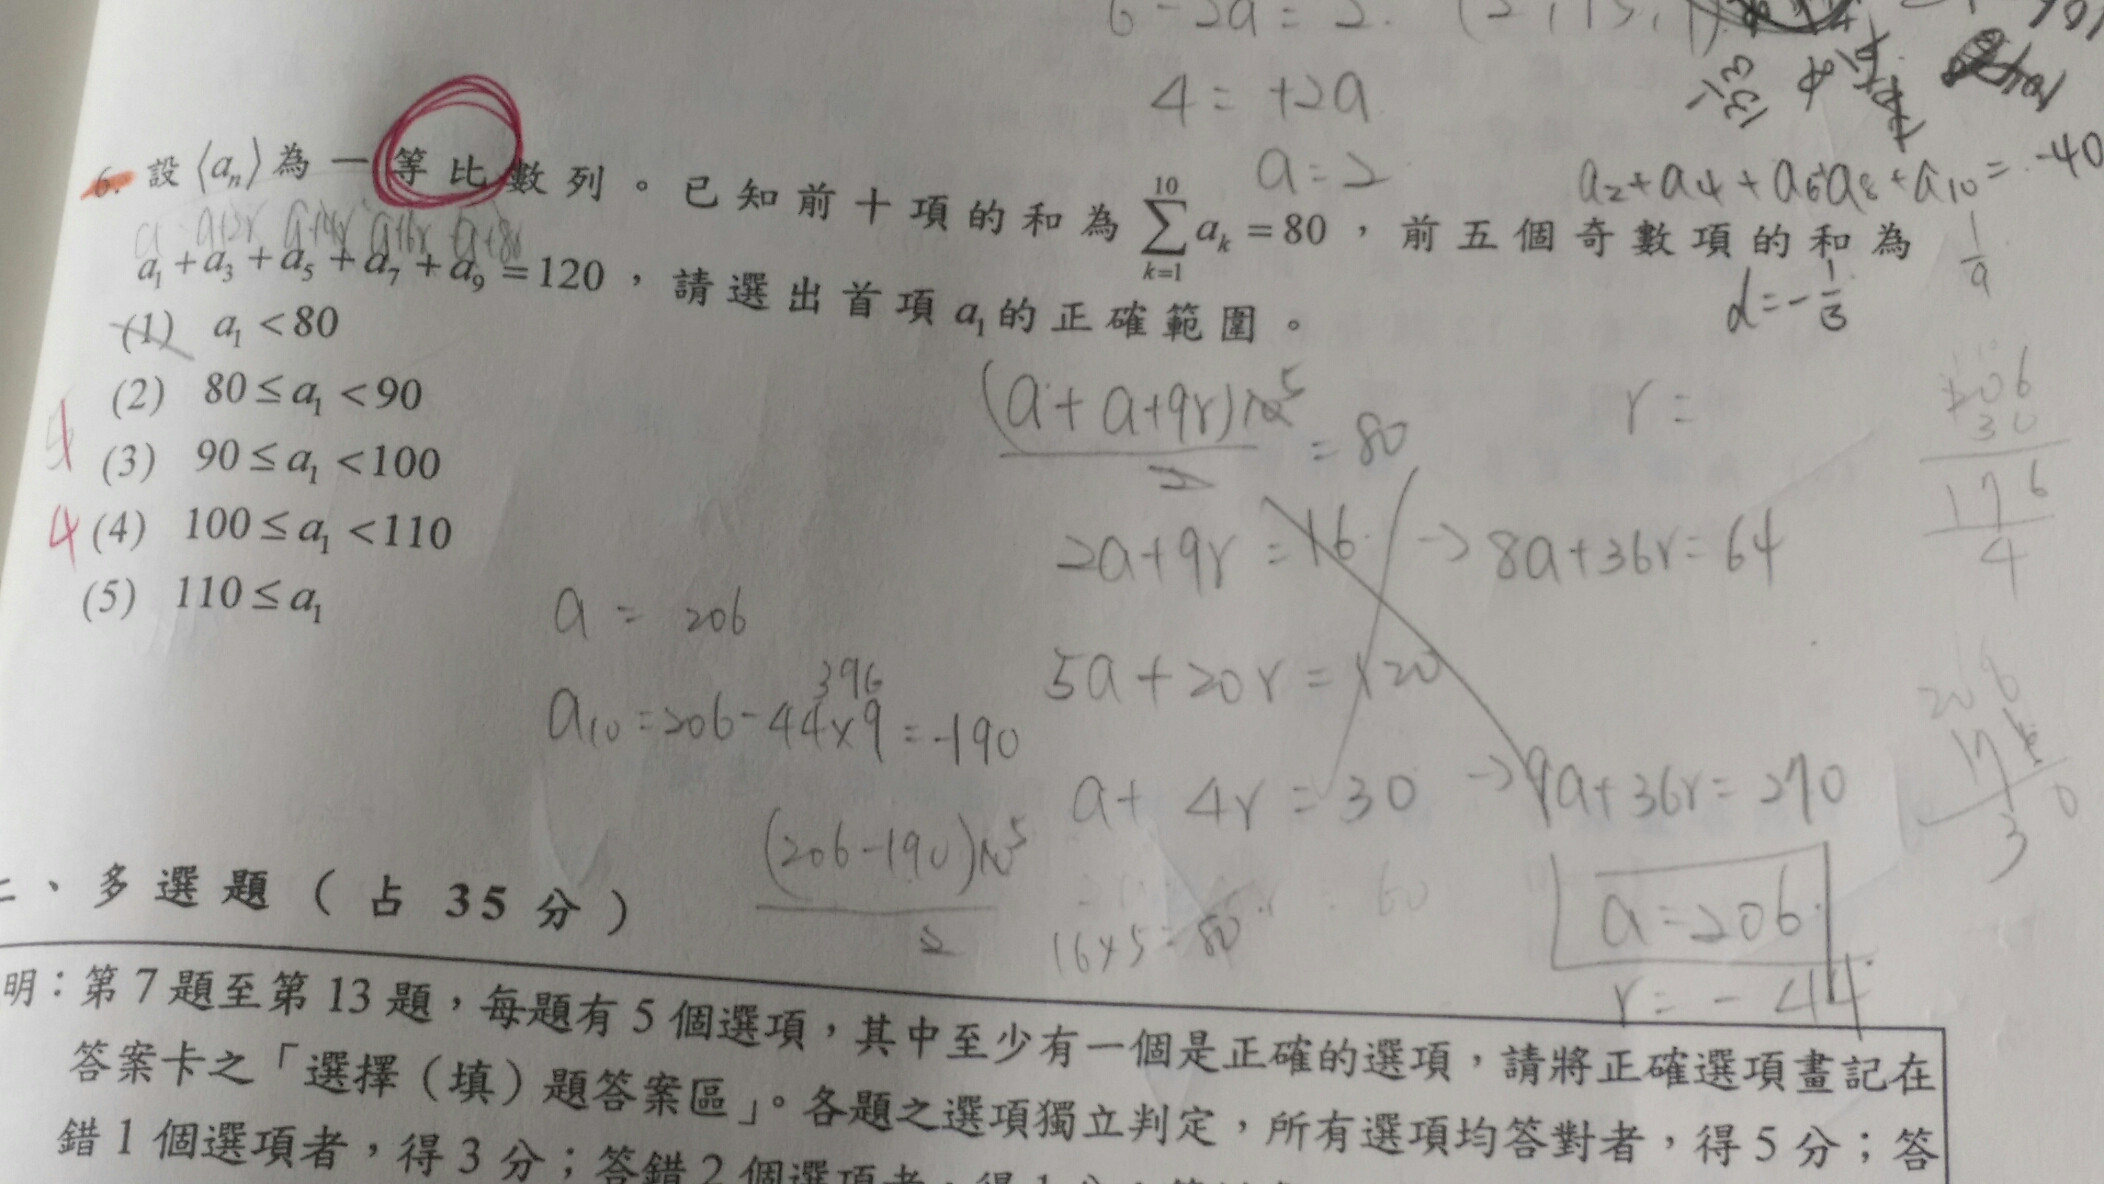 6-2a=2.
4=+2a
a=2
a2+a4+a6+a8+a10=-40
1/9
d=-1/3
6. 設⟨aₙ⟩為一等比數列。已知前十項的和為∑(k=1→10) aₖ=80,前五個奇數項的和為
a a+2r a+4r a+6r a+8r
a₁+a₃+a₅+a₇+a₉=120,請選出首項a₁的正確範圍。
(1) a₁<80
(2) 80≤a₁<90
(3) 90≤a₁<100
4 (4) 100≤a₁<110
(5) 110≤a₁
(a+a+9r)10 5/2=80
r=
2a+9r=16 → 8a+36r=64
5a+20r=120
a+4r=30 → 9a+36r=270
a=206
r=-44
a=206
396
a10=206-44×9=-190
(206-190)10 5/2
16×5=80
206
30
176
4
206
176
30
二、多選題(占35分)
明:第7題至第13題,每題有5個選項,其中至少有一個是正確的選項,請將正確選項畫記在
答案卡之「選擇(填)題答案區」。各題之選項獨立判定,所有選項均答對者,得5分;答
錯1個選項者,得3分;答錯2個選項者,得1分